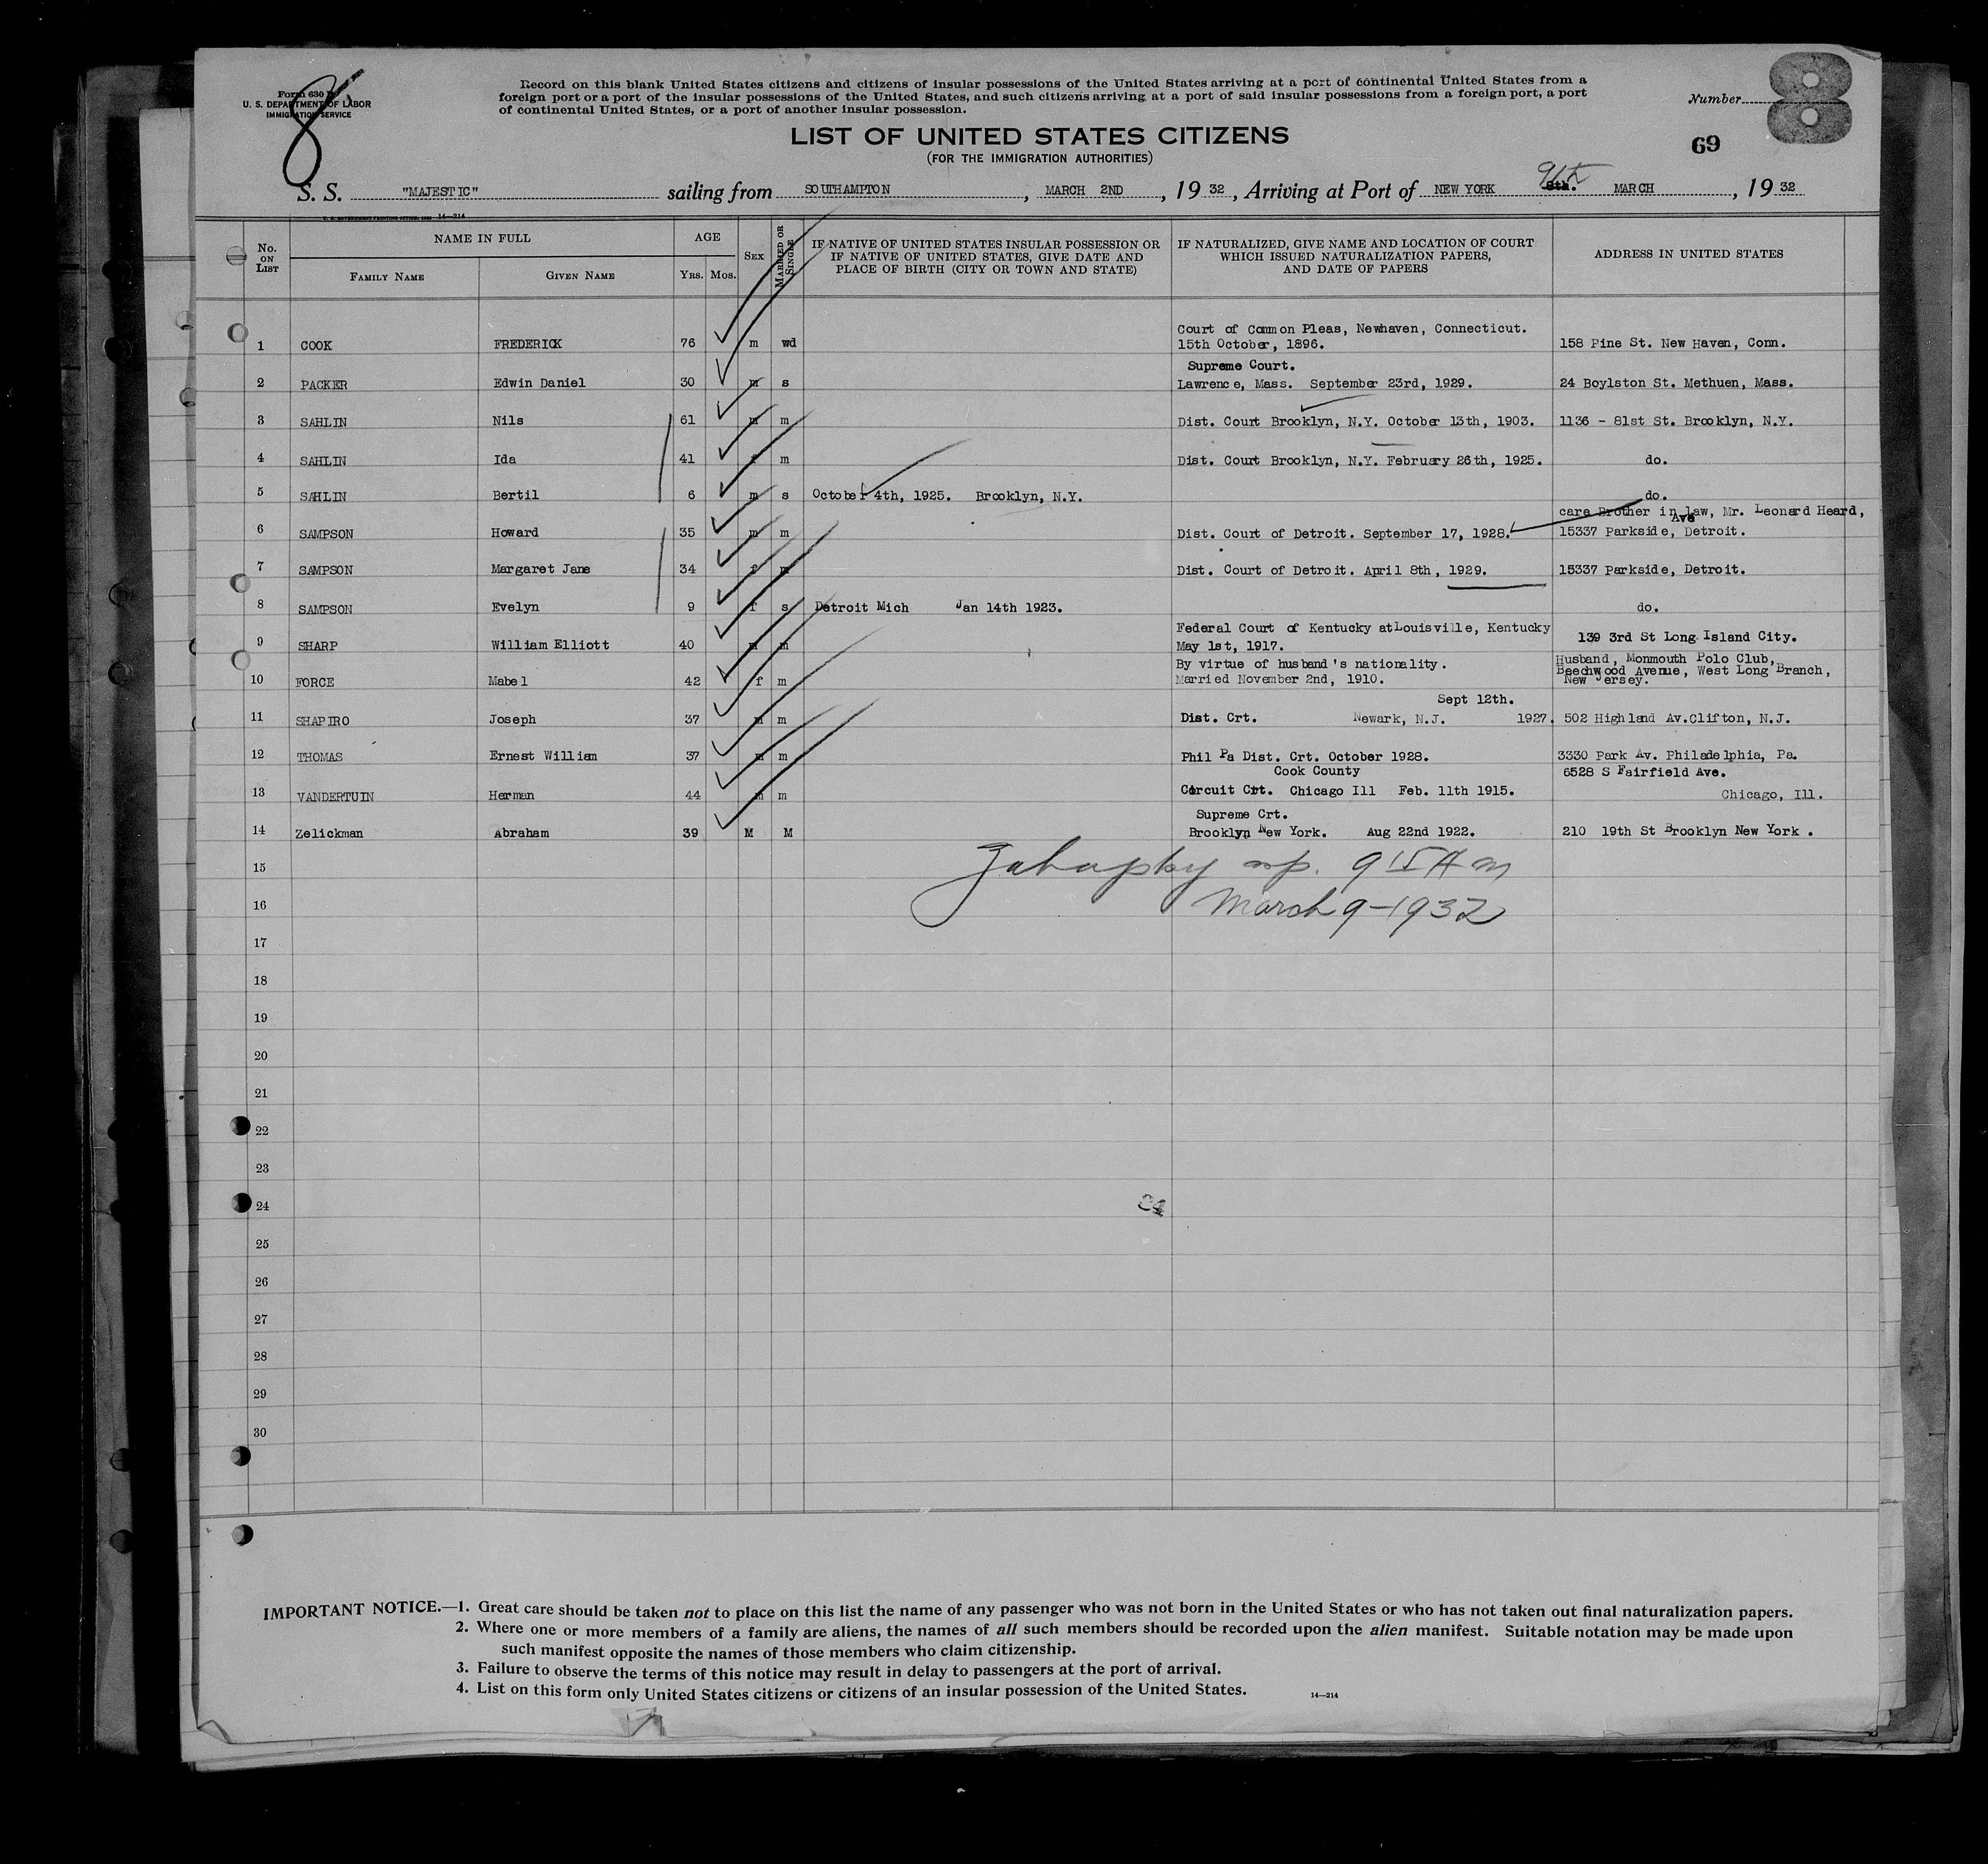 Form 630 B
U. S. DEPARTMENT OF LABOR
IMMIGRATION SERVICE
8
Record on this blank United States citizens and citizens of insular possessions of the United States arriving at a port of continental United States from a
foreign port or a port of the insular possessions of the United States, and such citizens arriving at a port of said insular possessions from a foreign port, a port
of continental United States, or a port of another insular possession.
Number
8
69
LIST OF UNITED STATES CITIZENS
(FOR THE IMMIGRATION AUTHORITIES)
S. S. "MAJESTIC" sailing from SOUTHAMPTON, MARCH 2ND, 19 32, Arriving at Port of NEW YORK 8th. 9th MARCH, 19 32
14—214
No. ON LIST
NAME IN FULL
FAMILY NAME
GIVEN NAME
AGE
YRS. MOS.
SEX
MARRIED OR SINGLE
IF NATIVE OF UNITED STATES INSULAR POSSESSION OR
IF NATIVE OF UNITED STATES, GIVE DATE AND
PLACE OF BIRTH (CITY OR TOWN AND STATE)
IF NATURALIZED, GIVE NAME AND LOCATION OF COURT
WHICH ISSUED NATURALIZATION PAPERS,
AND DATE OF PAPERS
ADDRESS IN UNITED STATES
Court of Common Pleas, Newhaven, Connecticut.
1 COOK FREDERICK 76 m wd 15th October, 1896. 158 Pine St. New Haven, Conn.
Supreme Court.
2 PACKER Edwin Daniel 30 m s Lawrence, Mass. September 23rd, 1929. 24 Boylston St. Methuen, Mass.
3 SAHLIN Nils 61 m m Dist. Court Brooklyn, N.Y. October 13th, 1903. 1136 - 81st St. Brooklyn, N.Y.
4 SAHLIN Ida 41 f m Dist. Court Brooklyn, N.Y. February 26th, 1925. do.
5 SAHLIN Bertil 6 m s October 4th, 1925. Brooklyn, N.Y. do.
care Brother in law, Mr. Leonard Heard,
Ave
6 SAMPSON Howard 35 m m Dist. Court of Detroit. September 17, 1928. 15337 Parkside, Detroit.
7 SAMPSON Margaret Jane 34 f m Dist. Court of Detroit. April 8th, 1929. 15337 Parkside, Detroit.
8 SAMPSON Evelyn 9 f s Detroit Mich Jan 14th 1923. do.
Federal Court of Kentucky atLouisville, Kentucky
9 SHARP William Elliott 40 m m May 1st, 1917. 139 3rd St Long Island City.
By virtue of husband's nationality. Husband, Monmouth Polo Club,
10 FORCE Mabel 42 f m Married November 2nd, 1910. Beechwood Avenue, West Long Branch,
New Jersey.
Sept 12th.
11 SHAPIRO Joseph 37 m m Dist. Crt. Newark, N.J. 1927. 502 Highland Av.Clifton, N.J.
12 THOMAS Ernest William 37 m m Phil Pa Dist. Crt. October 1928. 3330 Park Av. Philadelphia, Pa.
Cook County 6528 S Fairfield Ave.
13 VANDERTUIN Herman 44 m m Circuit Crt. Chicago Ill Feb. 11th 1915. Chicago, Ill.
Supreme Crt.
14 Zelickman Abraham 39 M M Brooklyn New York. Aug 22nd 1922. 210 19th St Brooklyn New York .
15 9 15 Am
16 March 9-1932
17
18
19
20
21
22
23
24
25
26
27
28
29
30
IMPORTANT NOTICE.—1. Great care should be taken not to place on this list the name of any passenger who was not born in the United States or who has not taken out final naturalization papers.
2. Where one or more members of a family are aliens, the names of all such members should be recorded upon the alien manifest. Suitable notation may be made upon
such manifest opposite the names of those members who claim citizenship.
3. Failure to observe the terms of this notice may result in delay to passengers at the port of arrival.
4. List on this form only United States citizens or citizens of an insular possession of the United States.
14—214